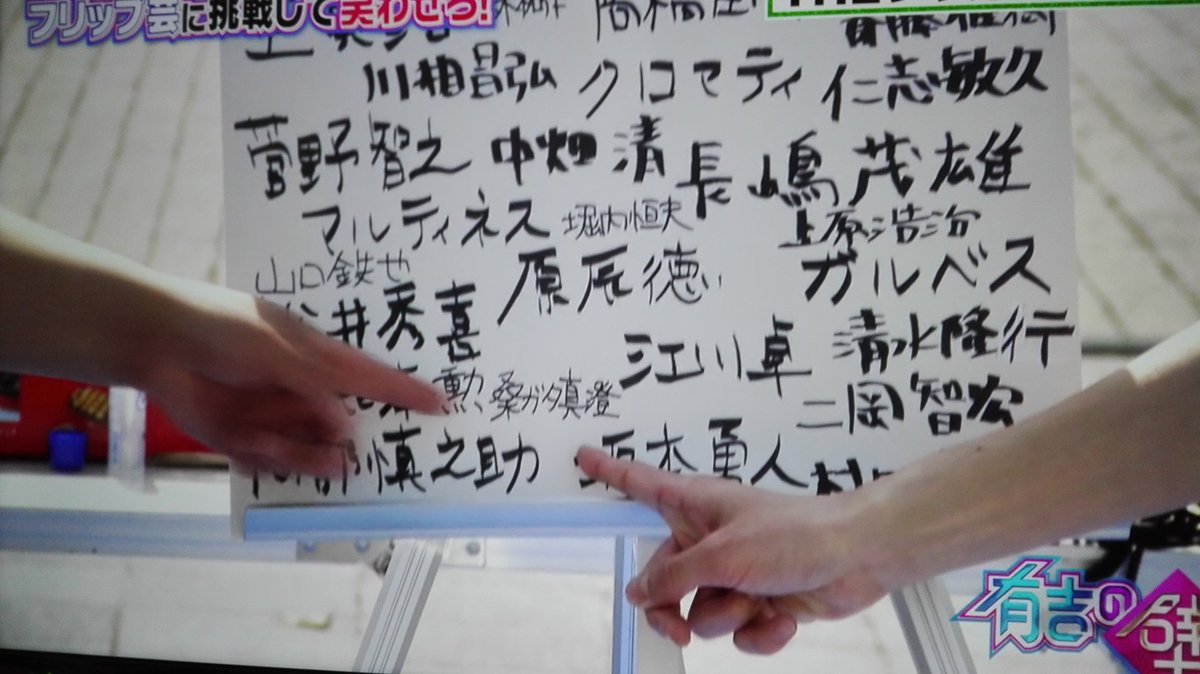 フリップ芸に挑戦して笑わせろ!
川相昌弘 クロマティ 仁志敏久
菅野智之 中畑清 長嶋茂雄
マルティネス 堀内恒夫 上原浩治
山口鉄也 原辰徳 ガルベス
井秀喜 江川卓 清水隆行
勲 桑田真澄 二岡智宏
慎之助 坂本勇人 村
有吉の